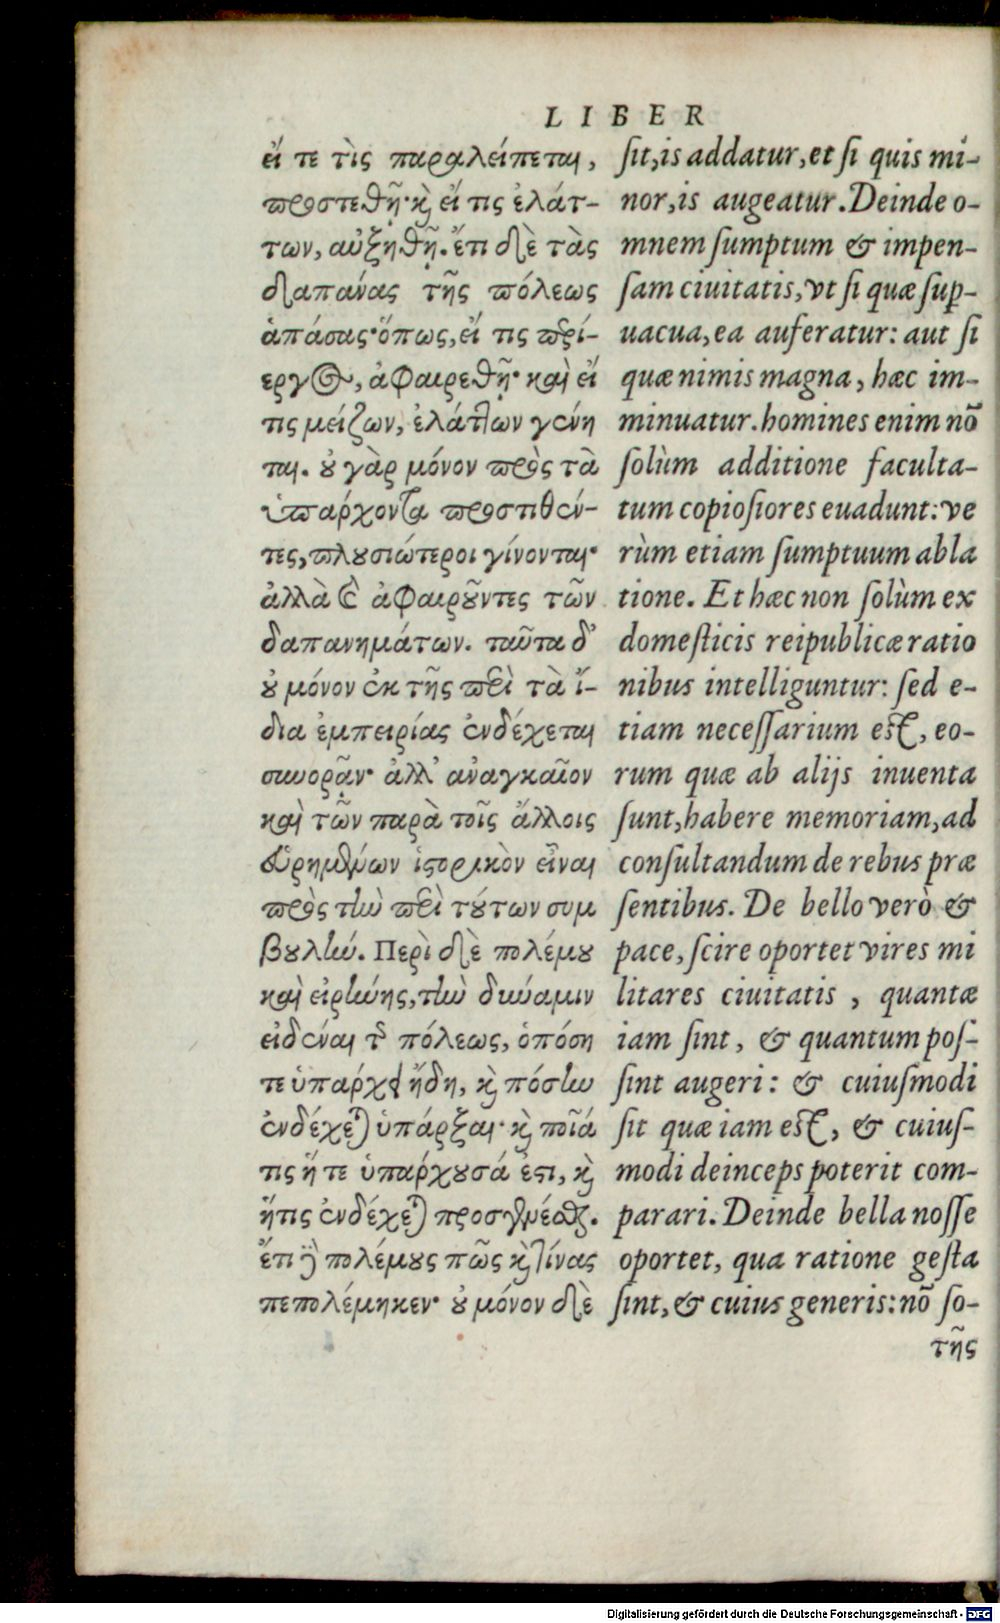 LIBER
εἴ τε τὶς παραλείπεται,
προστεθῇ· καὶ εἴ τις ἐλάτ-
των, αὐξηθῇ. ἔτι δὲ τὰς
δαπάνας τῆς πόλεως
ἁπάσας· ὅπως, εἴ τις περί-
εργος, ἀφαιρεθῇ· καὶ εἴ
τις μείζων, ἐλάττων γένη
ται. οὐ γὰρ μόνον πρὸς τὰ
ὑπάρχοντα προστιθέν-
τες, πλουσιώτεροι γίνονται·
ἀλλὰ καὶ ἀφαιροῦντες τῶν
δαπανημάτων. ταῦτα δ᾽
οὐ μόνον ἐκ τῆς περὶ τὰ ἴ-
δια ἐμπειρίας ἐνδέχεται
συνορᾷν· ἀλλ᾽ ἀναγκαῖον
καὶ τῶν παρὰ τοῖς ἄλλοις
εὑρημένων ἱστορικὸν εἶναι
πρὸς τὴν περὶ τούτων συμ
βουλήν. Περὶ δὲ πολέμου
καὶ εἰρήνης, τὴν δύναμιν
εἰδέναι τῆς πόλεως, ὁπόση
τε ὑπάρχει ἤδη, καὶ πόσην
ἐνδέχεται ὑπάρξαι· καὶ ποῖά
τις ἥ τε ὑπάρχουσά ἐστι, καὶ
ἥτις ἐνδέχεται προσγενέσθαι.
ἔτι δὲ πολέμους πῶς καὶ τίνας
πεπολέμηκεν· οὐ μόνον δὲ
sit, is addatur, et si quis mi-
nor, is augeatur. Deinde o-
mnem sumptum & impen-
sam ciuitatis, vt si quæ sup-
uacua, ea auferatur: aut si
quæ nimis magna, hæc im-
minuatur. homines enim nõ
solùm additione faculta-
tum copiosiores euadunt: ve
rùm etiam sumptuum abla
tione. Et hæc non solùm ex
domesticis reipublicæ ratio
nibus intelliguntur: sed e-
tiam necessarium est, eo-
rum quæ ab alijs inuenta
sunt, habere memoriam, ad
consultandum de rebus præ
sentibus. De bello verò &
pace, scire oportet vires mi
litares ciuitatis, quantæ
iam sint, & quantum pos-
sint augeri: & cuiusmodi
sit quæ iam est, & cuius-
modi deinceps poterit com-
parari. Deinde bella nosse
oportet, qua ratione gesta
sint, & cuius generis: nõ so-
τῆς
Digitalisierung gefördert durch die Deutsche Forschungsgemeinschaft - DFG